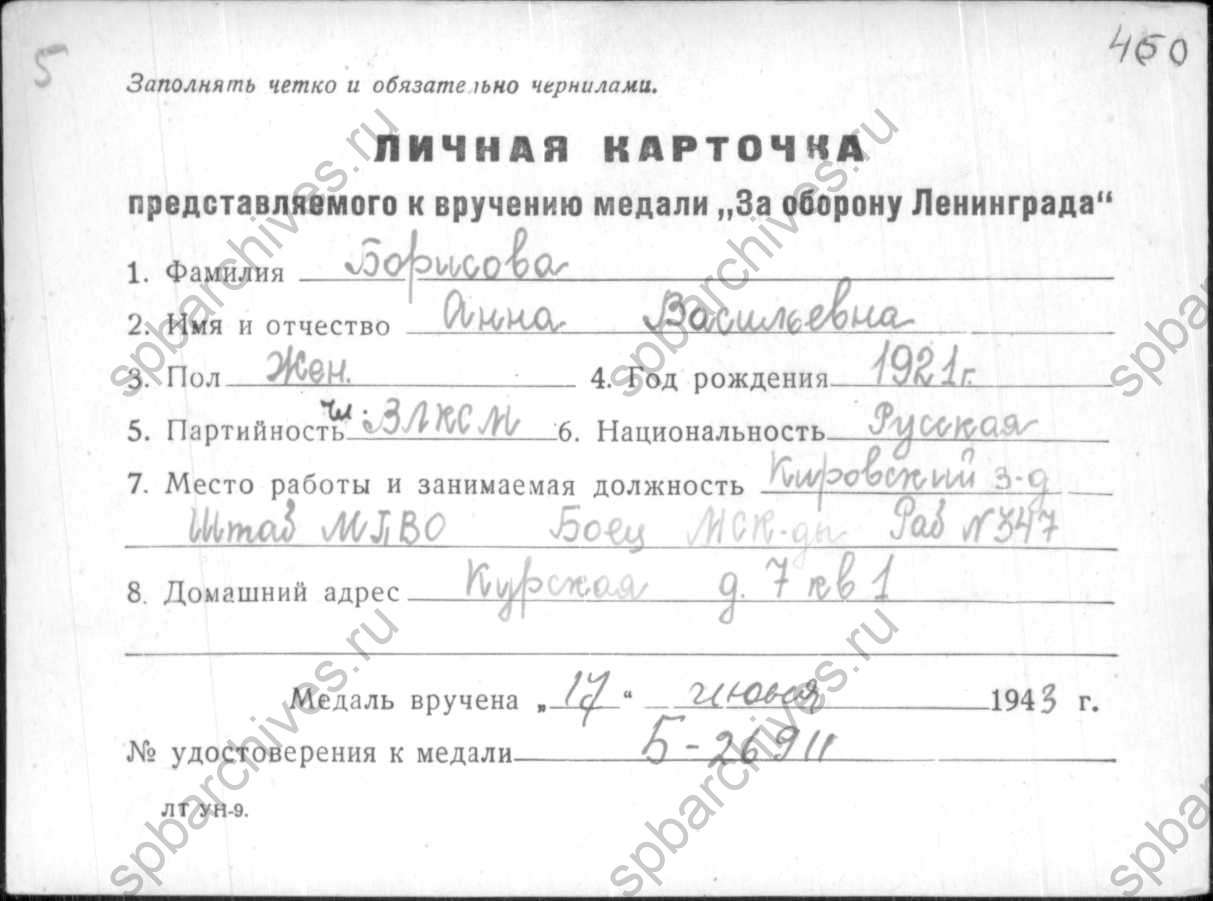 5
450
Заполнять четко и обязательно чернилами.
ЛИЧНАЯ КАРТОЧКА
представляемого к вручению медали „За оборону Ленинграда“
1. Фамилия Борисова
2. Имя и отчество Анна Васильевна
3. Пол Жен. 4. Год рождения 1921г.
5. Партийность чл. ВЛКСМ 6. Национальность Русская
7. Место работы и занимаемая должность Кировский з-д
Штаб МПВО Боец МСК-ды Раб N347
8. Домашний адрес Курская д. 7 кв 1
Медаль вручена „17“ июля 1943 г.
№ удостоверения к медали Б-26911
ЛТ УН-9.
spbarchives.ru
spbarchives.ru
spbarchives.ru
spbarchives.ru
spba
spba